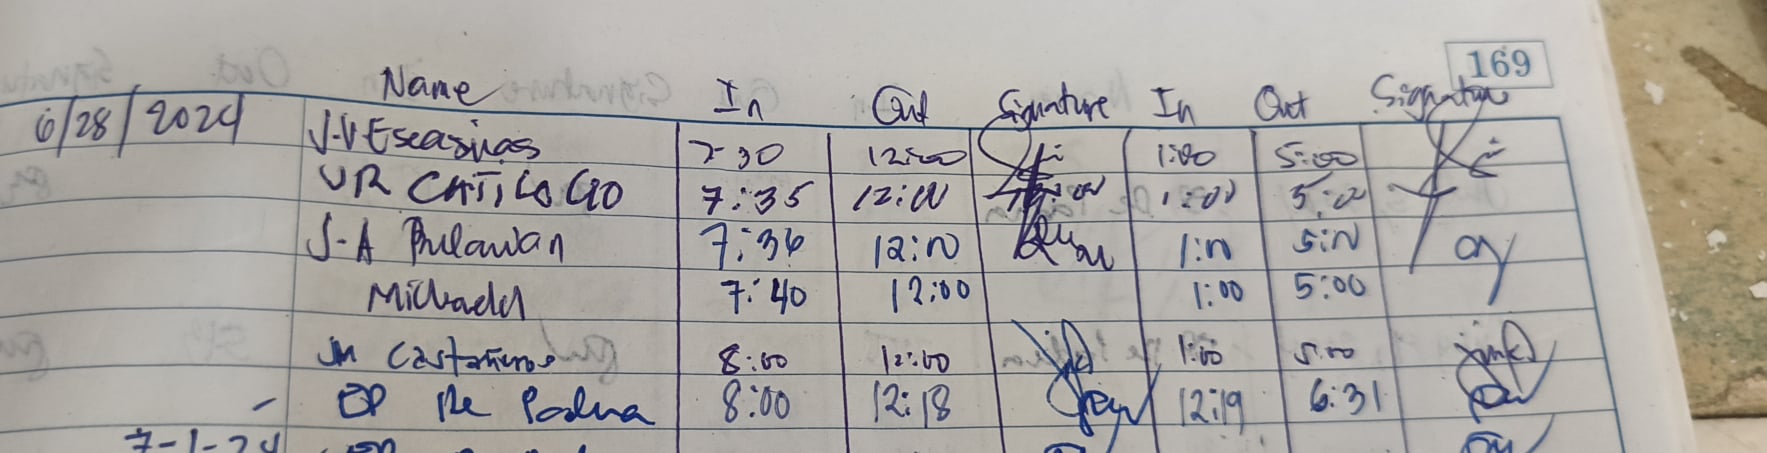 169
Name In Out Signature In Out Signature
6/28/2024 J-V Escasinas 7:30 12:00 1:00 5:00
VR CATILOGO 7:35 12:00 1:00 5:00
J-A Bulawan 7:36 12:00 1:00 5:00
Michael 7:40 12:00 1:00 5:00
JM Castañeros 8:00 12:00 1:00 5:00
De Padua 8:00 12:18 12:19 6:31
7-1-24